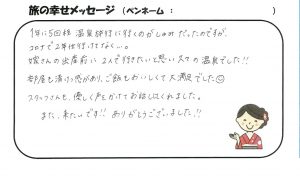 旅の幸せメッセージ (ペンネーム: )
1年に5回程 温泉旅行に行くのがしゅみだったのですが、
コロナで2年程行けてなく…。
嫁さんの出産前に2人で行きたいと思い久々の温泉でした!!
部屋も清けつ感があり、ご飯もおいしくて大満足でした☺
スタッフさんも、優しく声をかけてお話ししてくれました。
また、来たいです!! ありがとうございました!!